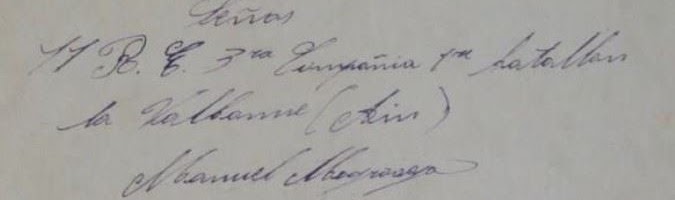 Señas
11 R. E. 3ra Compañia 1er batallon
la Valbonne (Ain)
Manuel